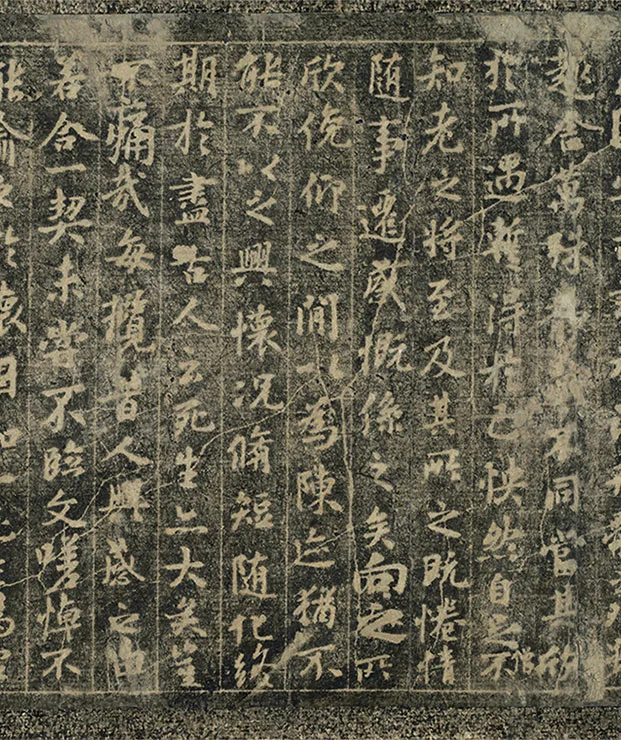 趣舍萬殊靜躁不同當其欣
僧
於所遇暫得於己快然自足不
知老之將至及其所之既惓情
随事遷感慨係之矣向之所
欣俛仰之閒以為陳迹猶不
能不以之興懷況脩短随化終
期於盡古人云死生亦大矣豈
不痛哉每攬昔人興感之由
若合一契未嘗不臨文嗟悼不
能喻之於懷固知一死生為虛